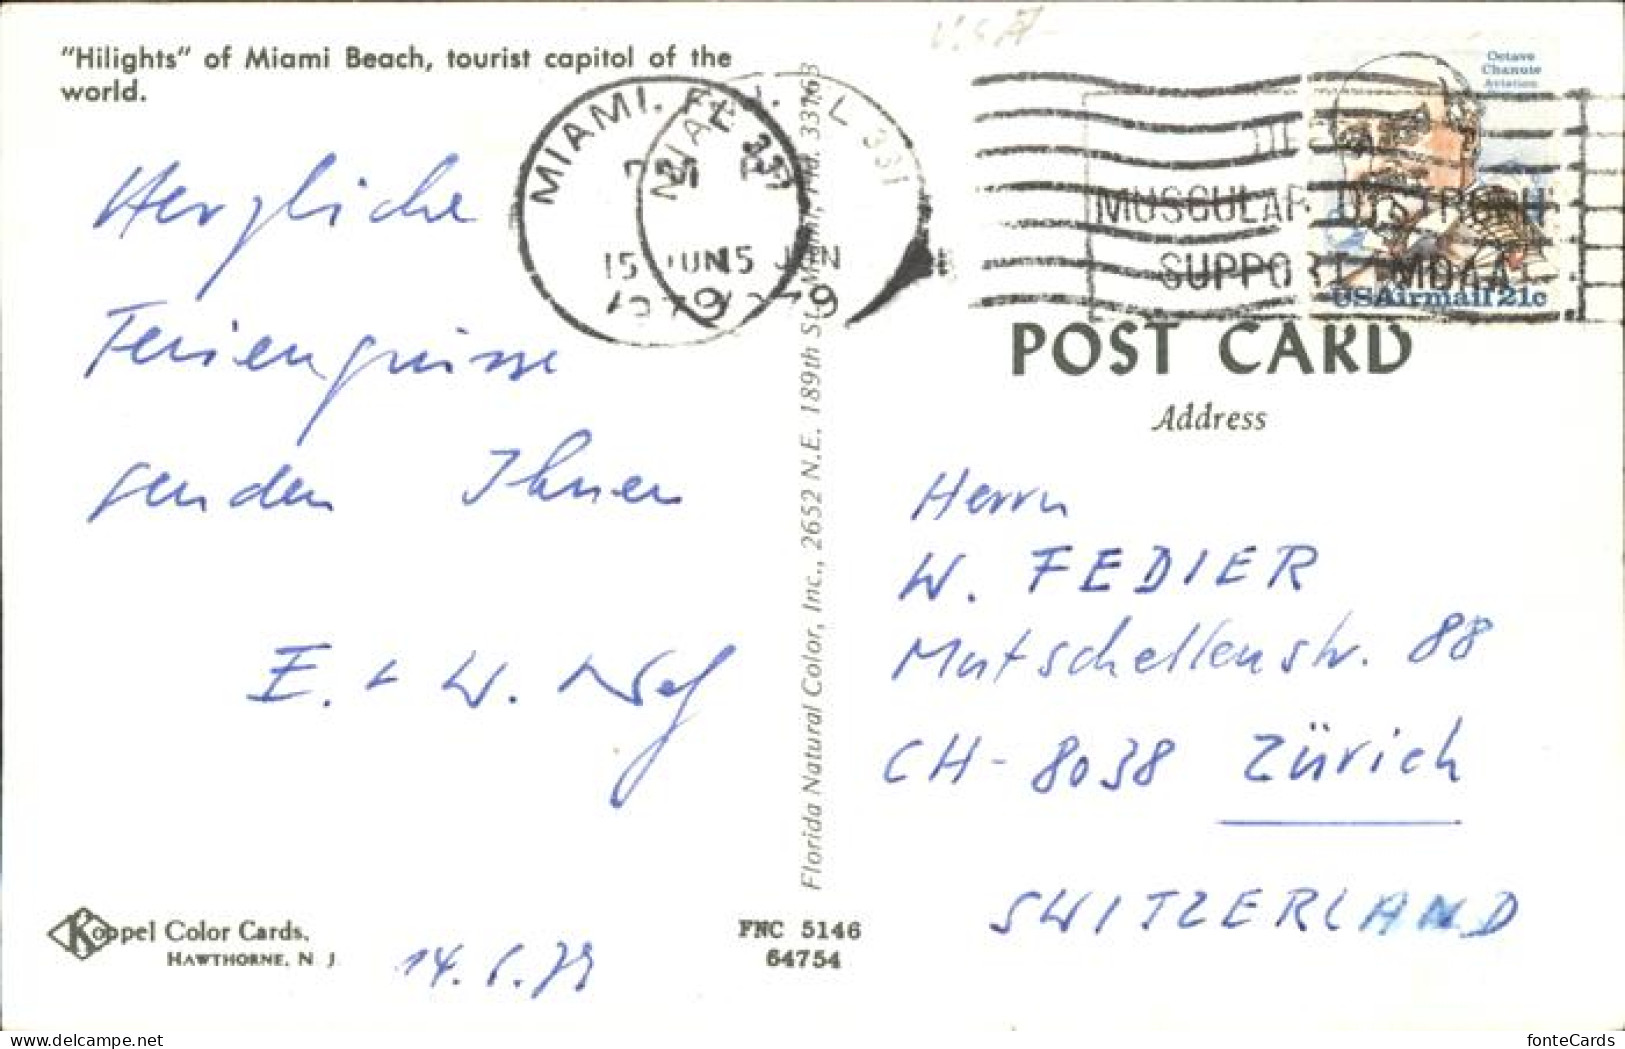 "Hilights" of Miami Beach, tourist capitol of the
world.
Herzliche
Feriengrüsse
senden Ihnen
E. + W. Nef
Koppel Color Cards.
HAWTHORNE, N J
14. 6. 79
FNC 5146
64754
Florida Natural Color, Inc., 2652 N.E. 189th St., Miami, Fla. 33163
USA
MIAMI. FL 331
15 JUN
1979
MIAMI. FL 331
15 JUN
1979
MUSCULAR DYSTROPHY
SUPPORT MDAA
Octave
Chanute
Aviation
USAirmail 21c
POST CARD
Address
Herrn
W. FEDIER
Mutschellenstr. 88
CH-8038 Zürich
SWITZERLAND
fonteCards